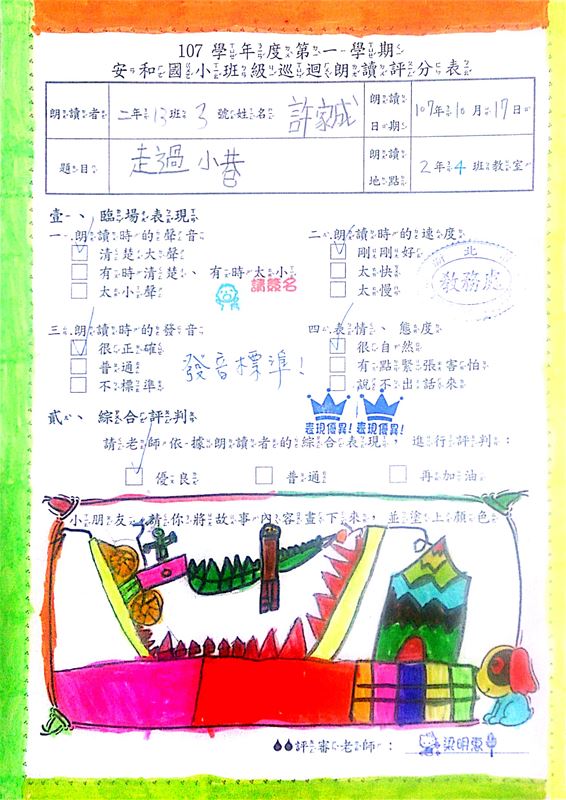 107 學年度第一學期
安和國小班級巡迴朗讀評分表
朗讀者 二年13班3號姓名 許家誠 朗讀日期 107年10月17日
題目 走過小巷 朗讀地點 2年4班教室
壹、臨場表現
一、朗讀時的聲音 二、朗讀時的速度
清楚大聲 剛剛好
有時清楚、有時太小 太快
太小聲 太慢
請簽名
北
教務處
三、朗讀時的發音 四、表情、態度
很正確 很自然
普通 有點緊張害怕
不標準 說不出話來
發音標準！
貳、綜合評判
表現優異! 表現優異!
請老師依據朗讀者的綜合表現，進行評判：
優良 普通 再加油
小朋友，請你將故事內容畫下來，並塗上顏色
評審老師：梁明惠